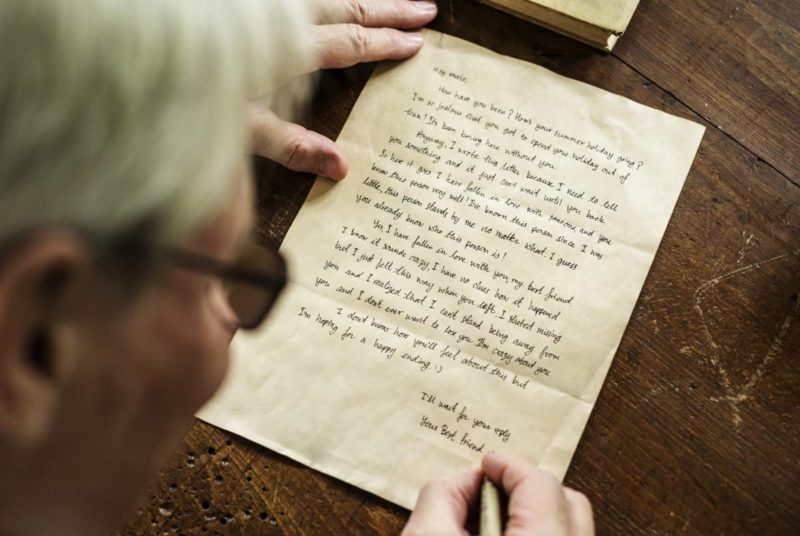 Hey mate,
How have you been? How's your summer holiday going?
I'm so jealous that you got to spend your holiday out of
town! It's been boring here without you.
Anyway, I wrote this letter because I need to tell
you something and it just can't wait until you back.
So here it goes, I have fallen in love with someone, and you
know this person very well! I've known this person since I was
little, this person stands by me no matter what. I guess
you already know who this person is!
Yes, I have fallen in love with you, my best friend.
I know it sounds crazy, I have no clues how it happened
but I just felt this way when you left. I started missing
you and I realized that I can't stand being away from
you and I don't ever want to lose you. I'm crazy about you
I don't know how you'll feel about this but
I'm hoping for a happy ending :)
I'll wait for your reply
Your Best friend